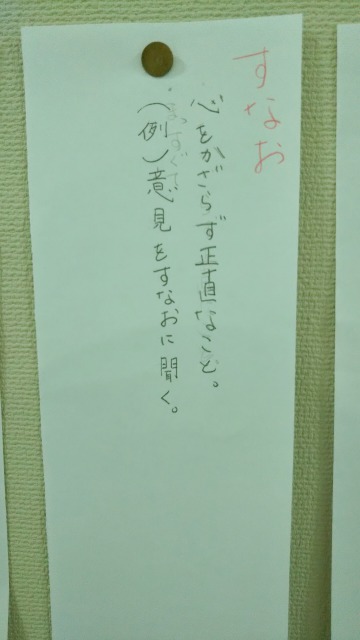 すなお
心をかざらず正直なこと。
(例)意見をすなおに聞く。